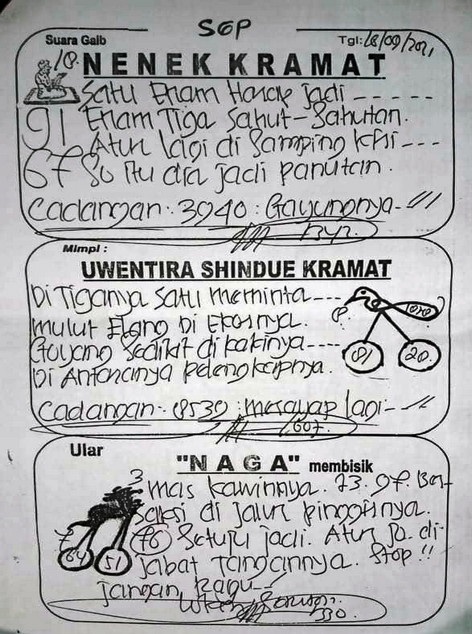 SGP
Suara Gaib
Tgl: 18/09/2021
NENEK KRAMAT
Satu Enam Harap jadi ------
91 Enam Tiga Sahut-Sahutan.
Atur lagi di Samping Kiri ---
67 80 itu dia jadi panutan.
Cadangan. 3940: Gayungnya
Mimpi :
UWENTIRA SHINDUE KRAMAT
Di Tiganya Satu meminta ---
mulut Elang Di Ekornya.
Goyang Sedikit di kakinya ----
Di Antaranya pelengkapnya.
81 20.
Cadangan. 8530: merayap lagi
607.
Ular
"NAGA" membisik
3 mas kawinnya. 73. 97. Ber-
saksi di jalur pinggirnya.
Setuju jadi. Atur ja di
64 51
jabat Tangannya. Stop !!
jangan Ragu
330.